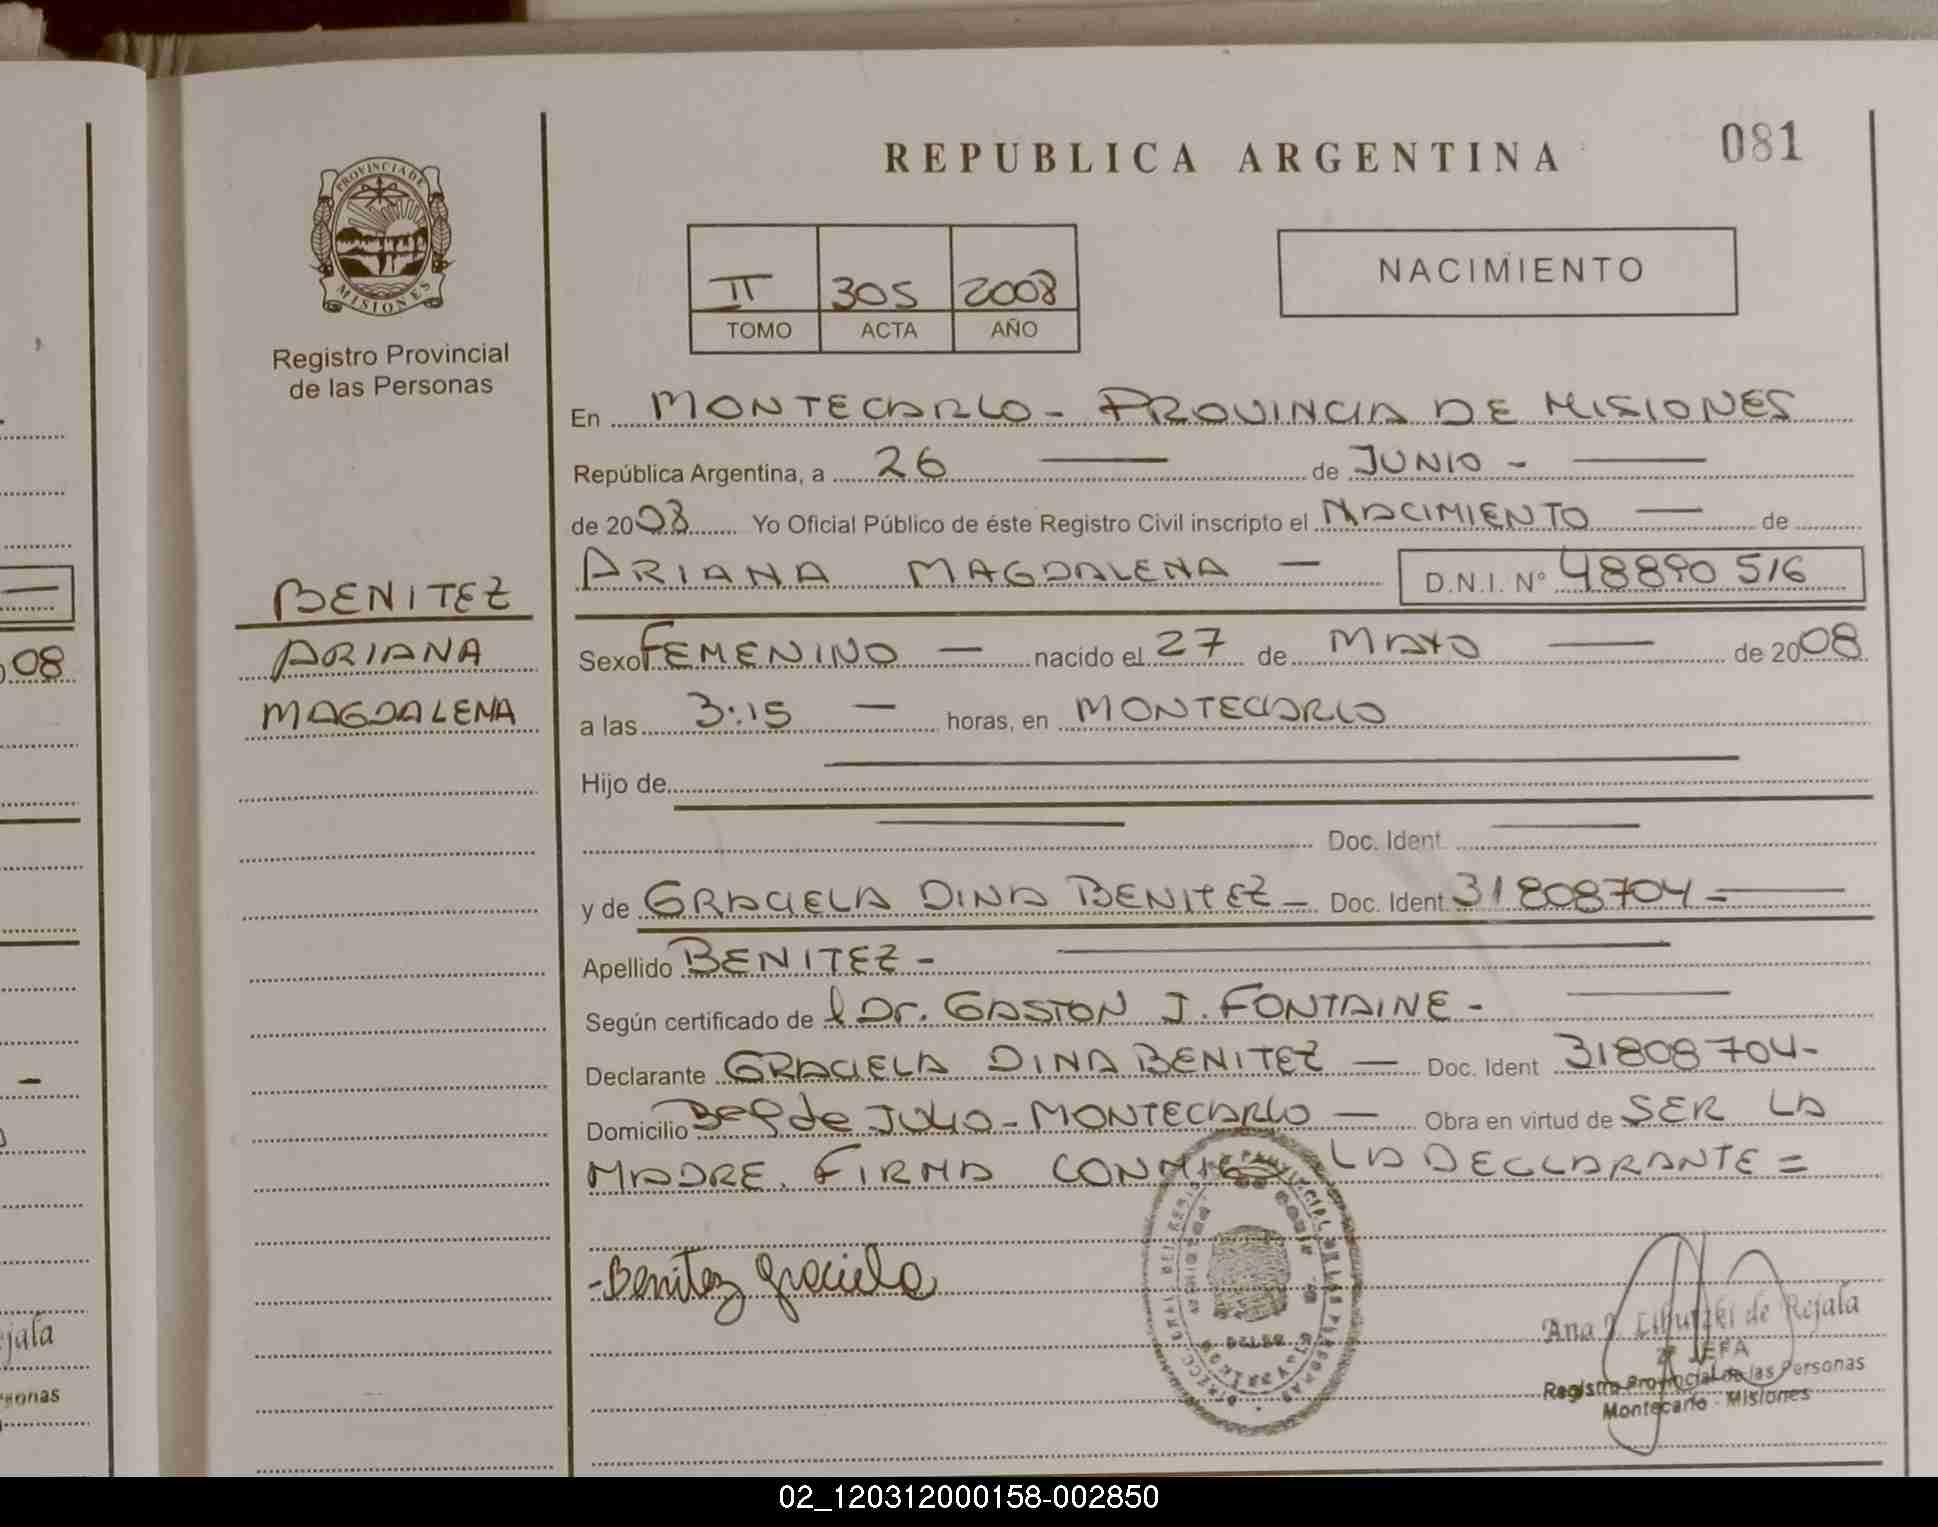 REPUBLICA ARGENTINA
081
PROVINCIA DE MISIONES
Registro Provincial
de las Personas
II 305 2008
TOMO ACTA AÑO
NACIMIENTO
En MONTECARLO - PROVINCIA DE MISIONES
República Argentina, a 26 — de JUNIO - —
de 2008 Yo Oficial Público de éste Registro Civil inscripto el NACIMIENTO — de
ARIANA MAGDALENA — D.N.I. Nº 48890516
BENITEZ
ARIANA
MAGDALENA
Sexo FEMENINO — nacido el 27 de MAYO — de 2008
a las 3:15 — horas, en MONTECARLO
Hijo de —
— Doc. Ident. —
y de GRACIELA DINA BENITEZ - Doc. Ident. 31808704 -
Apellido BENITEZ -
Según certificado de l Dr. GASTON J. FONTAINE -
Declarante GRACIELA DINA BENITEZ — Doc. Ident 31808704-
Domicilio de JULIO - MONTECARLO — Obra en virtud de SER LA
MADRE. FIRMA CONMIGO LA DECLARANTE =
-Benitez Graciela
Ana de Rejala
JEFA
Registro Provincial de las Personas
Montecarlo - Misiones
08
ejala
sonas
02_120312000158-002850